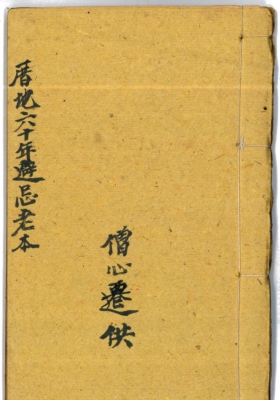 曆地六十年避忌老本
僧心遷供